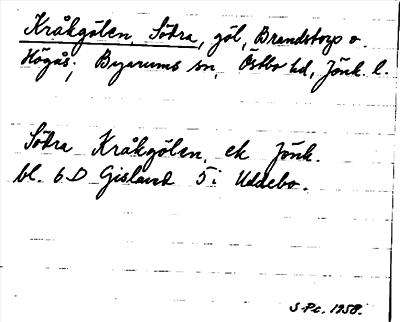 Kråkgölen, Södra, göl, Brandstorp o.
Högås; Byarums sn, Östbo hd, Jönk. l.
Södra Kråkgölen, ek Jönk.
bl. 6 D Gislaved 5 i Uddebo.
S-Pc. 1958.